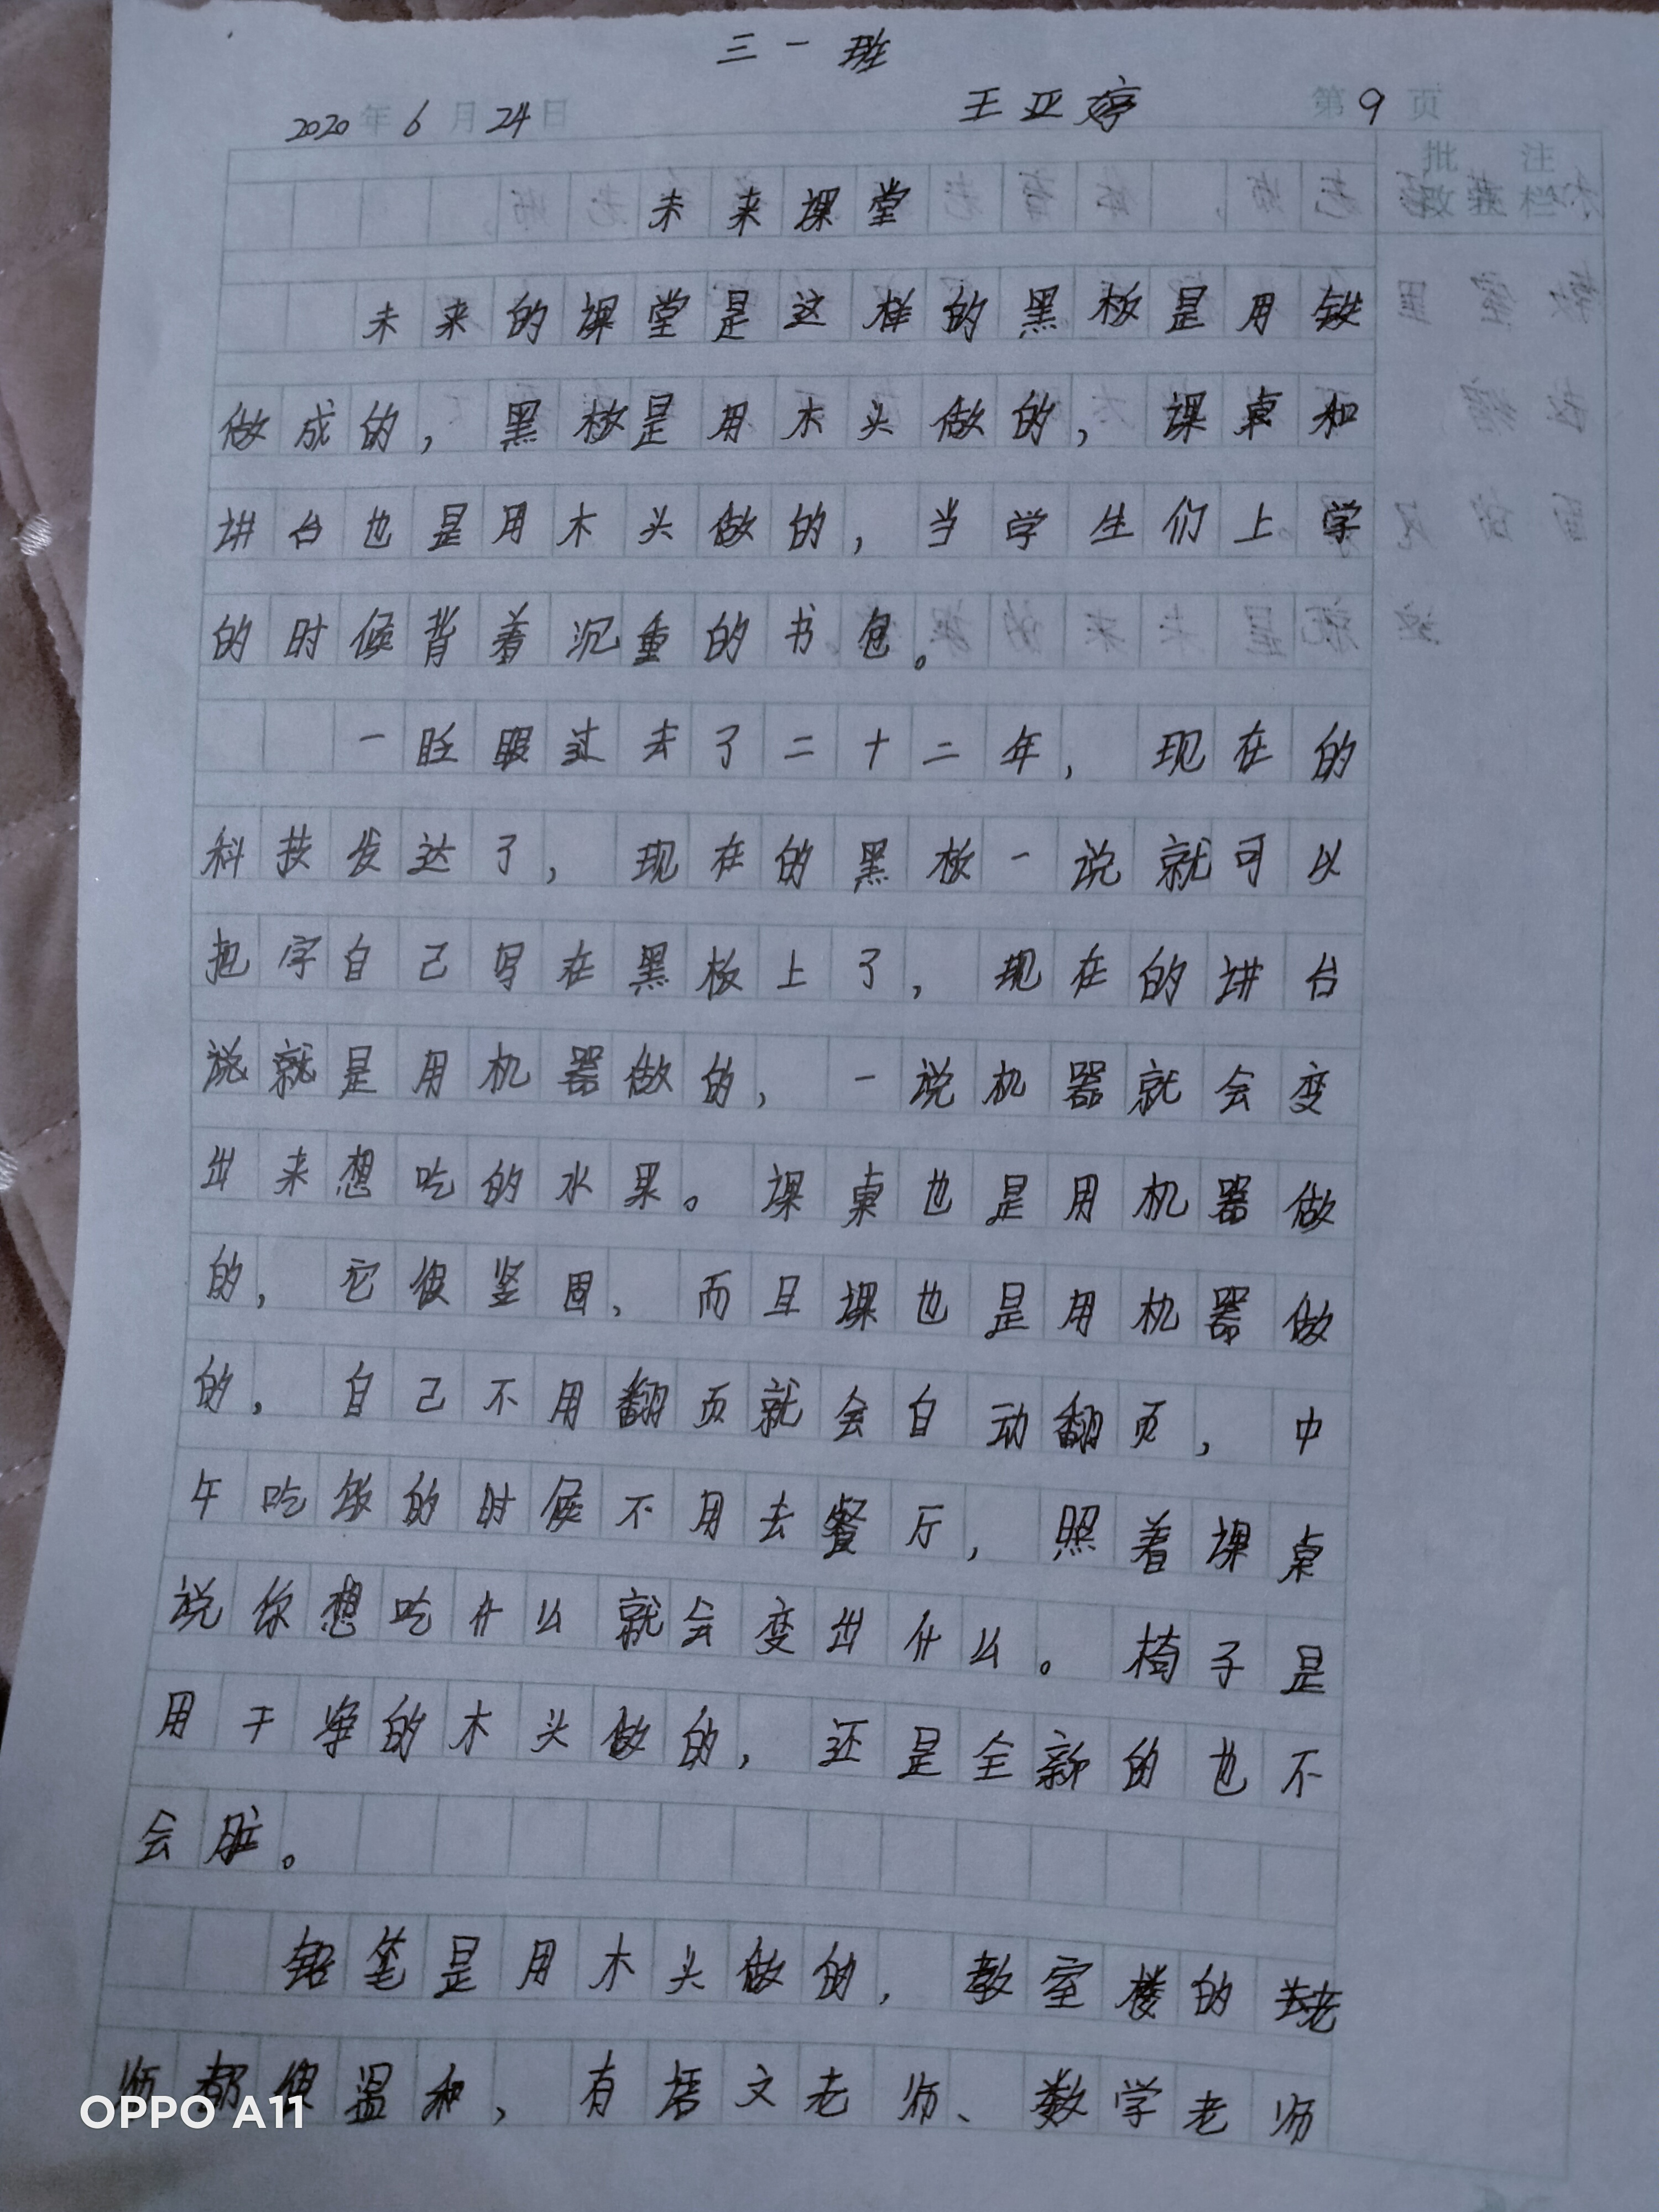 三一班
2020年6月24日 王亚婷 第9页
批注
改栏
未来课堂
未来的课堂是这样的黑板是用铁
做成的，黑板是用木头做的，课桌和
讲台也是用木头做的，当学生们上学
的时候背着沉重的书包。
一眨眼过去了二十二年，现在的
科技发达了，现在的黑板一说就可以
把字自己写在黑板上了，现在的讲台
说就是用机器做的，一说机器就会变
出来想吃的水果。课桌也是用机器做
的，它很坚固，而且课也是用机器做
的，自己不用翻页就会自动翻页，中
午吃饭的时候不用去餐厅，照着课桌
说你想吃什么就会变出什么。椅子是
用干净的木头做的，还是全新的也不
会脏。
铅笔是用木头做的，教室楼的老
师都很温和，有语文老师、数学老师
OPPO A11